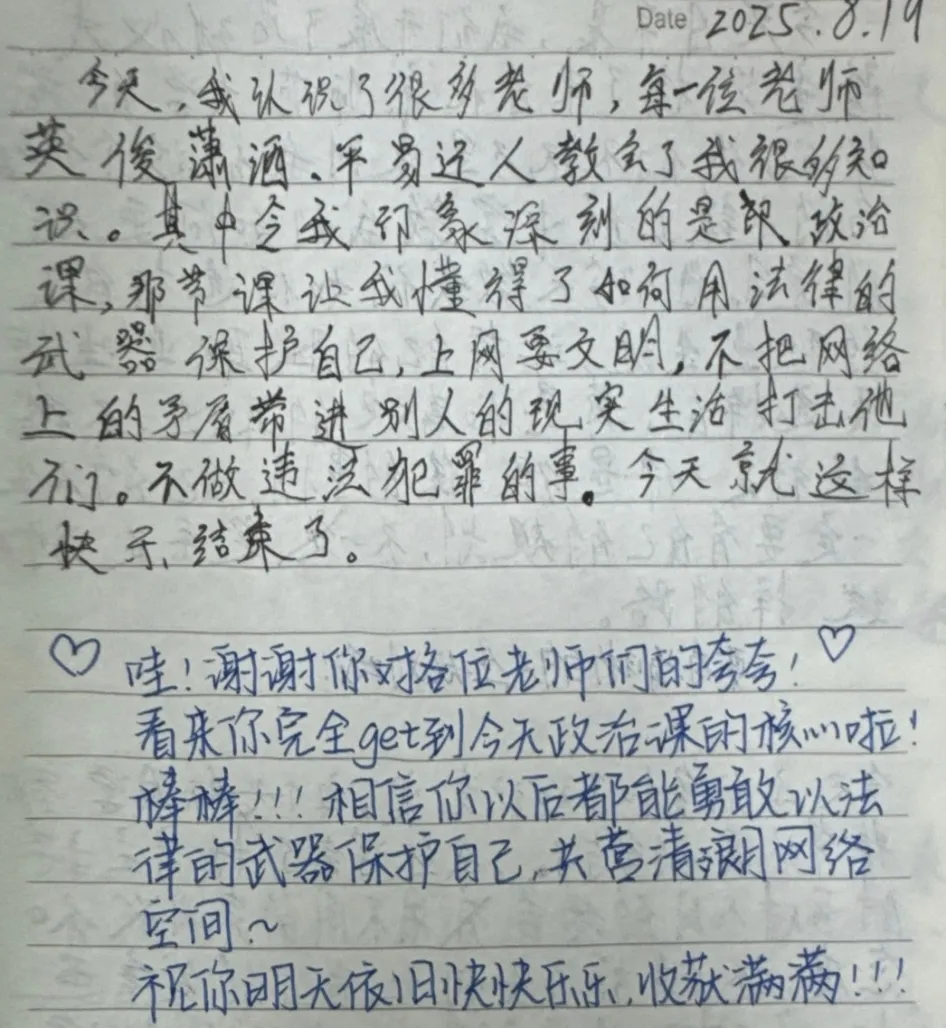 Date 2025.8.19
今天,我认识了很多老师,每一位老师
英俊潇洒、平易近人教会了我很多知
识。其中令我印象深刻的是 政治
课,那节课让我懂得了如何用法律的
武器保护自己,上网要文明,不把网络
上的矛盾带进别人的现实生活打击他
们。不做违法犯罪的事。今天就这样
快乐结束了。
♡哇!谢谢你对各位老师们的夸夸!♡
看来你完全get到今天政治课的核心啦!
棒棒!!!相信你以后都能勇敢以法
律的武器保护自己,共营清朗网络
空间~
祝你明天依旧快快乐乐,收获满满!!!